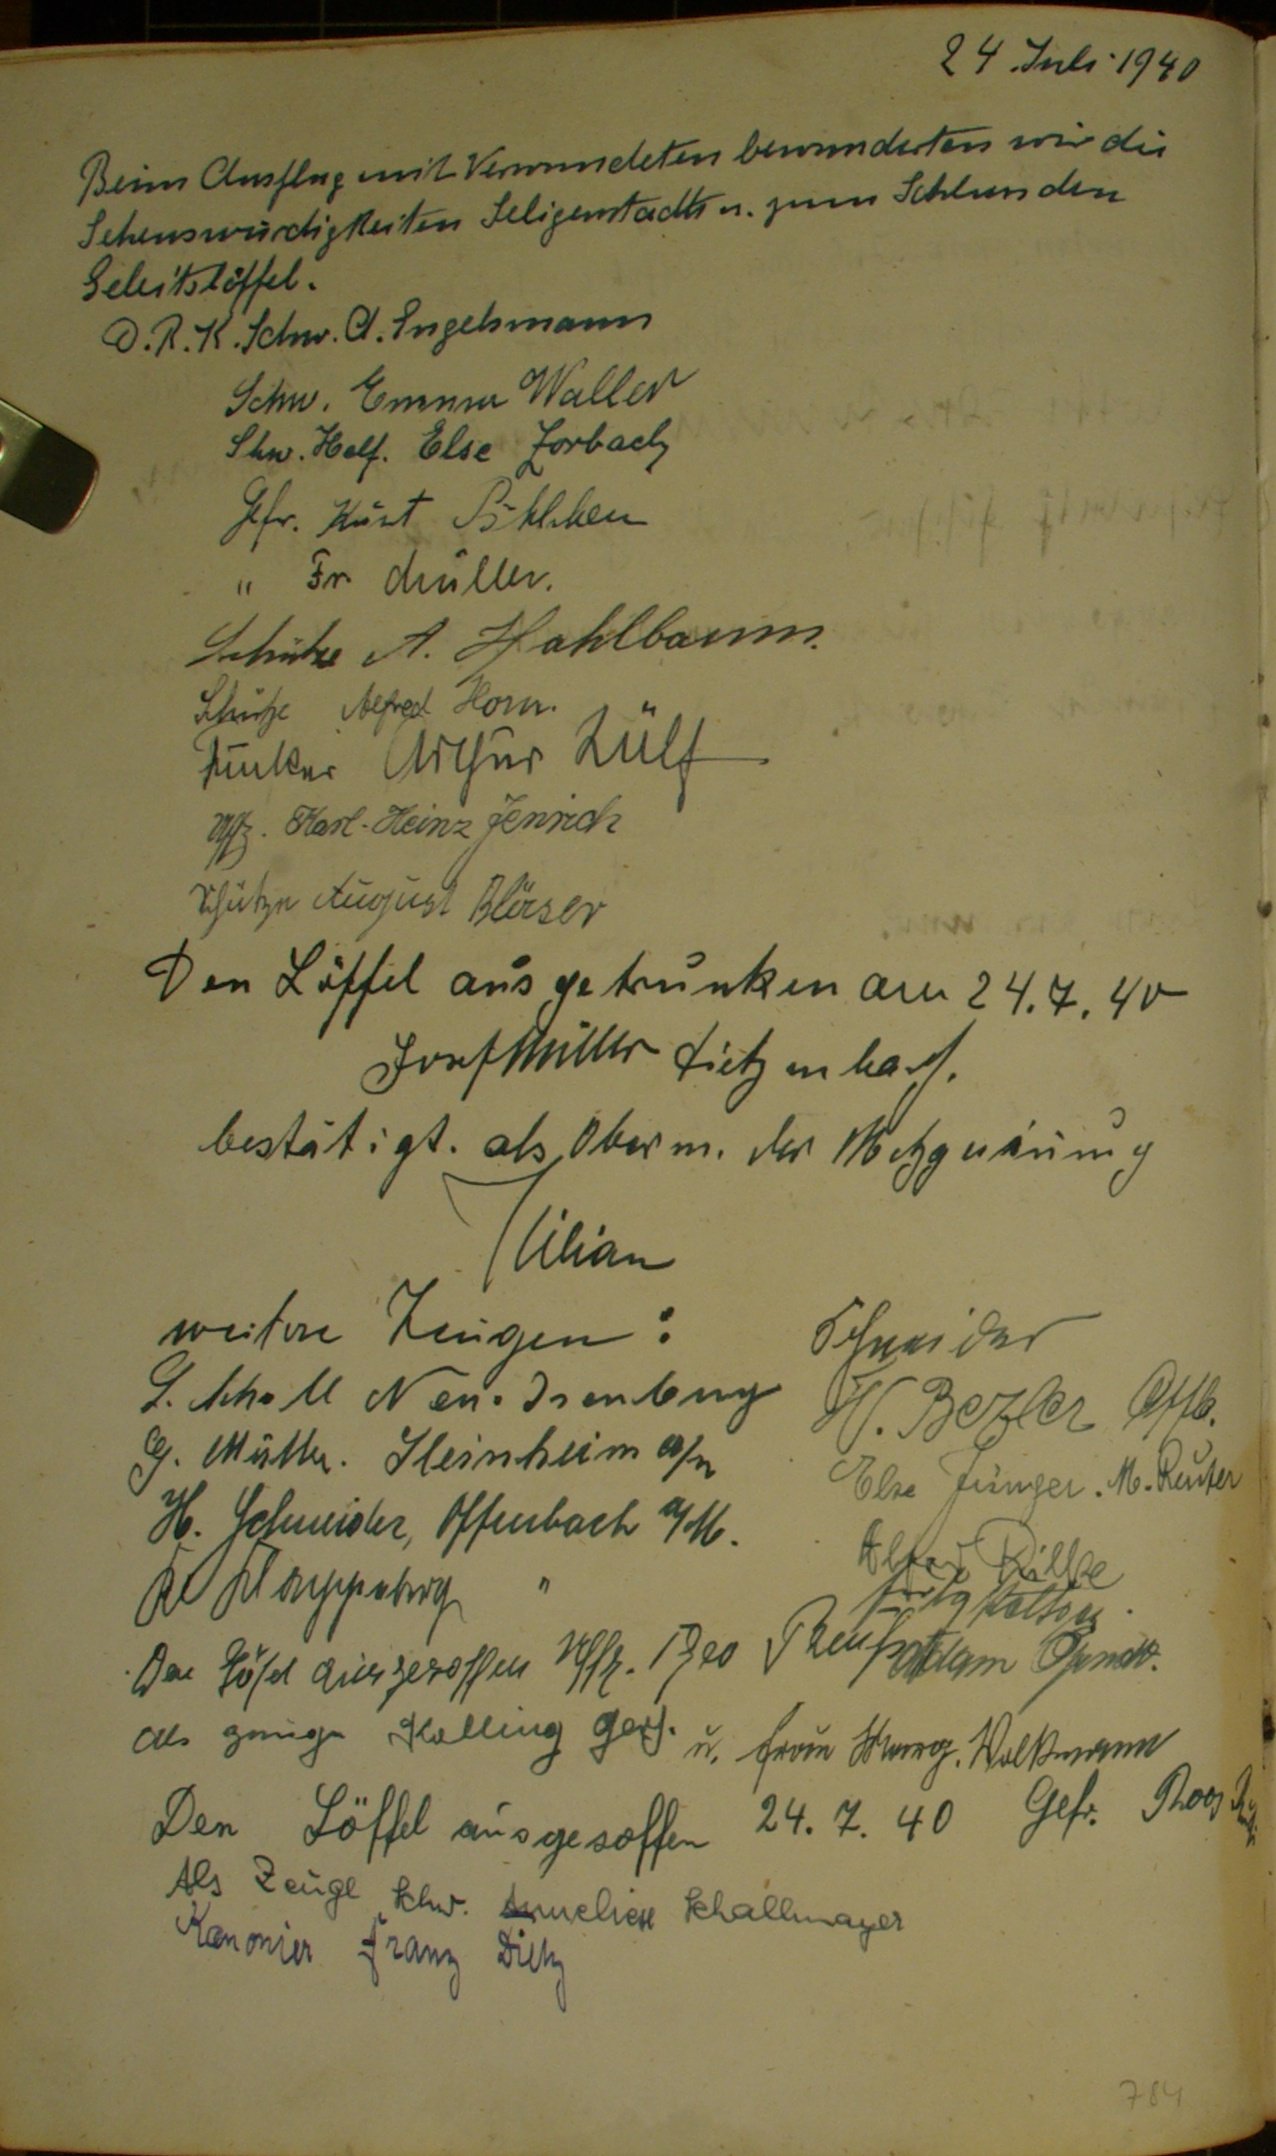 24. Juli 1940
Beim Ausflug mit Verwundeten bewunderten wir die
Sehenswürdigkeiten Seligenstadts u. zum Schluss den
Geleitslöffel.
D.R.K. Schw. A. Engelmann
Schw. Emma Waller
Schw. Helf. Else Zorbach
Gefr. Kurt
" Fr. Müller.
Schütze A. Hahlbaum.
Schütze Alfred Horn.
Funker Arthur Zülf
Uffz. Karl-Heinz Jenrich
Schütze August Bläser
Den Löffel ausgetrunken am 24.7.40
Josef Müller Dietzenbach.
bestätigt. als Oberm. der Metzgerinnung
Kilian
weitere Zeugen:
Schneider
G. Scholl Neu-Isenburg
W. Bezler Offb.
G. Müller. Kleinheim a/M
Else Jünger. M. Reuter
H. Schneider, Offenbach a/M.
Alfred Rilke
K. "
Den Löffel ausgesoffen Uffz. Theo
Adam
als Zeuge Kolling Gefr. u. Frau Marg. Volkmann
Den Löffel ausgesoffen 24.7.40 Gefr. Roos
Als Zeuge Schw. Anneliese Schallmayer
Kanonier Franz Dietz
784